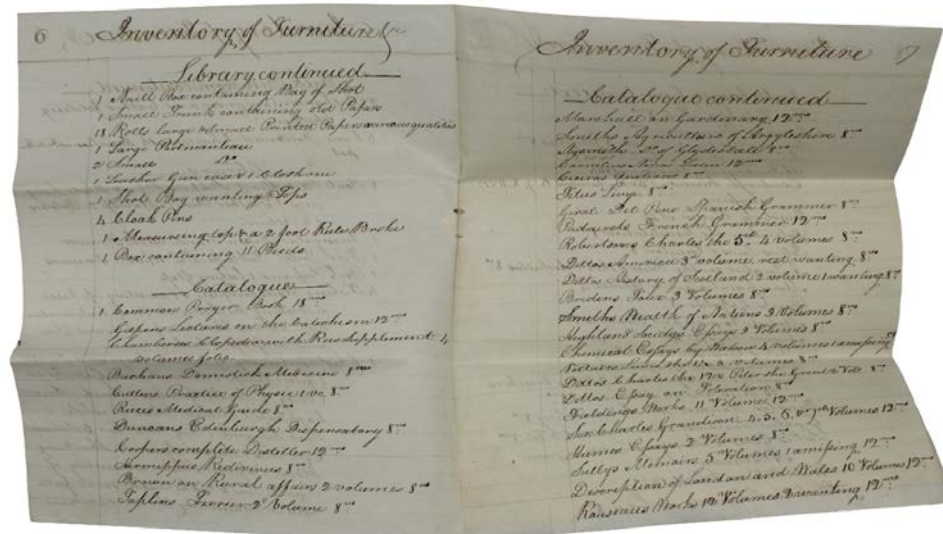 6
Inventory of Furniture &c
Library continued
1 Small Box containing Bag of Shot
1 Small Trunk containing old Papers
18 Rolls large & Small Printed Papers various qualities
1 Large Portmanteau
2 Small Do
1 Leather Gun case & 1 Cloth one
1 Shot Bag wanting Tops
4 Cloak Pins
1 Measuring top & a 2 foot Rule Broke
1 Box containing 11 Beeds
Catalogue
1 Common Prayer Book 18mo
Gilpins Lectures on the Catichism 12mo
Chamberses Clopedia with Rees supplement 4
volumes folio
Buchans Domistick Medicine 8vo
Cullens Practice of Physic 1 vo 8vo
Reeces Medical Guide 8vo
Duncans Edinburgh Dispensatory 8vo
Coopers complete Distiller 12mo
Hermippus Redivivus 8vo
Brown on Rural affairs 2 volumes 8vo
Taplins Farrier 2d Volume 8vo
7
Inventory of Furniture
Catalogue continued
Marshall on Gardinary 12mo
Smiths Agriculture of Argyleshire 8vo
Do of Clydesdale 8vo
Cornelius Nepos 12mo
8vo
Titus 8vo
Giral Del Pino Spanish Grammer 8vo
French Grammer 12mo
Robertsons Charles the 5th 4 volumes 8vo
Dittos America 3d volume, rest wanting 8vo
Dittos History of Scotland 2 volume 1 wanting 8vo
Bridens Tour 3 Volumes 8vo
Smiths Wealth of Nations 3 Volumes 8vo
Highland Society Essays 3 Volumes 8vo
Chemical Essays by Watson 4 volumes 1 amissing
Louis the volumes 8vo
Dittos Charles the 12 & Peter the Great 2 Vols 8vo
Dittos Essay on Toleration 8vo
Fieldings Works 11 Volumes 12mo
Sir Charles Grandison 4, 5, 6, & 7th Volumes 12mo
Humes Essays 2 Volumes 8vo
Sullys Memoirs 5 Volumes 1 amissing 12mo
Description of London and Wales 10 Volumes 12mo
Works 12 Volumes 2 wanting 12mo